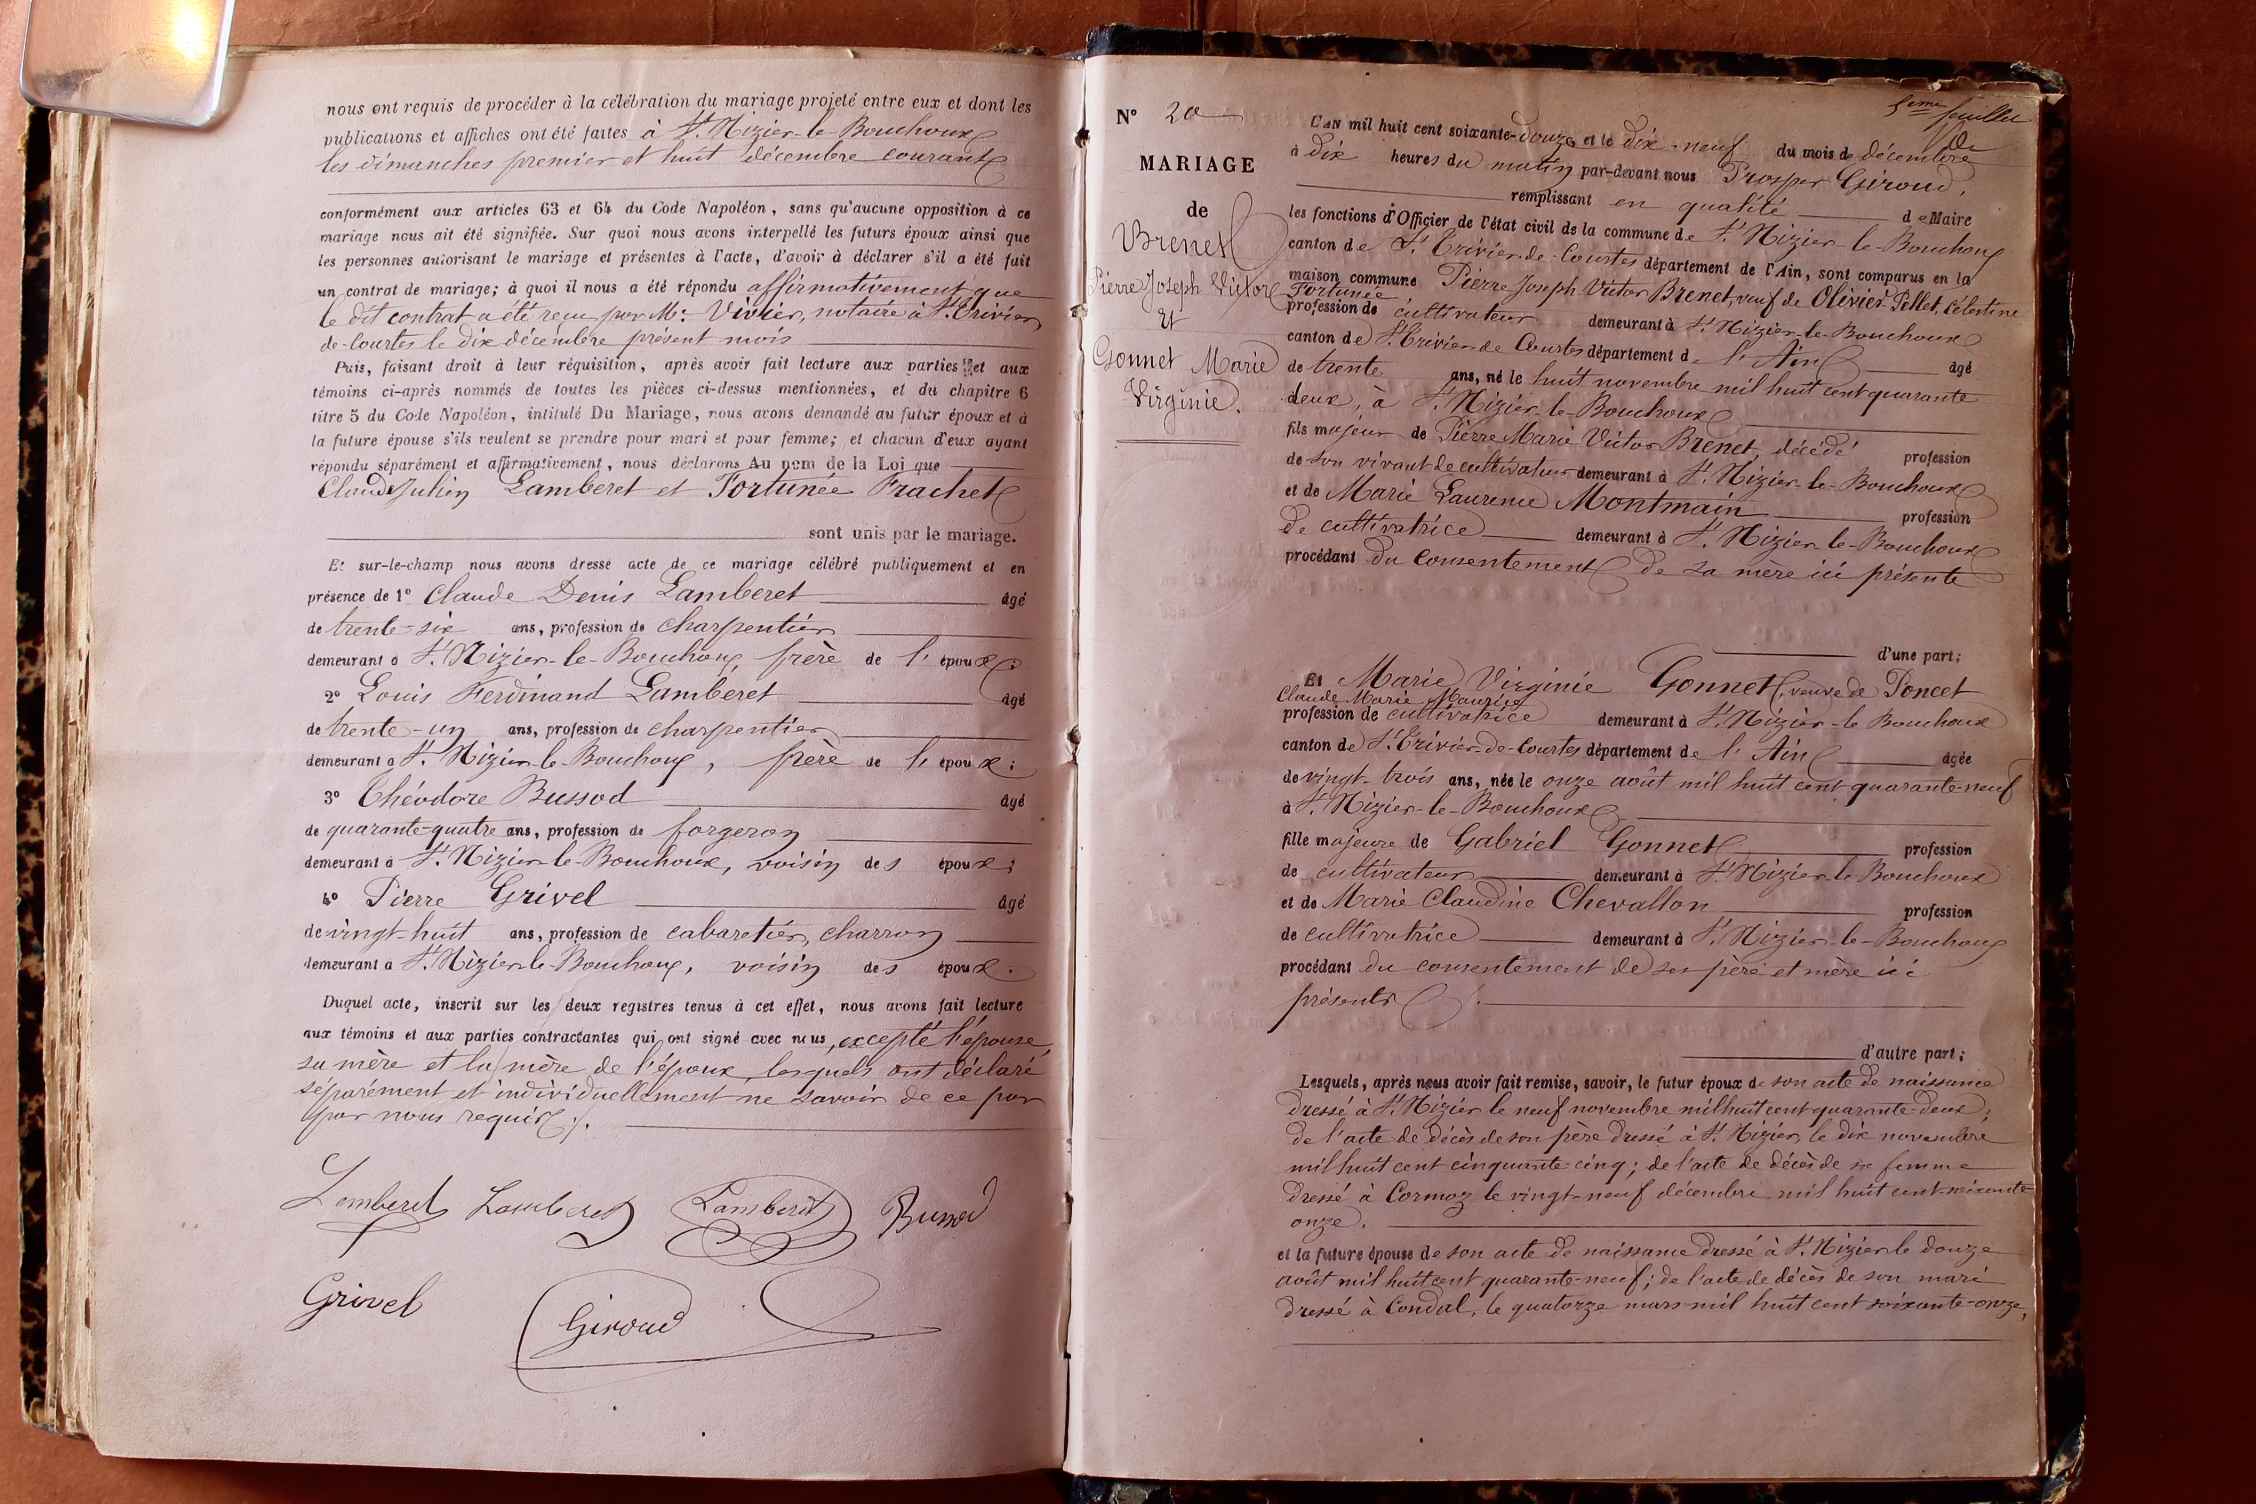 nous ont requis de procéder à la célébration du mariage projeté entre eux et dont les
publications et affiches ont été faites à St. Nizier-le-Bouchoux
les dimanches premier et huit décembre courant
conformément aux articles 63 et 64 du Code Napoléon, sans qu'aucune opposition à ce
mariage nous ait été signifiée. Sur quoi nous avons interpellé les futurs époux ainsi que
les personnes autorisant le mariage et présentes à l'acte, d'avoir à déclarer s'il a été fait
un contrat de mariage; à quoi il nous a été répondu affirmativement que
le dit contrat a été reçu par Me. Vivier, notaire à St. Trivier
de-Courtes le dix décembre présent mois
Puis, faisant droit à leur réquisition, après avoir fait lecture aux parties et aux
témoins ci-après nommés de toutes les pièces ci-dessus mentionnées, et du chapitre 6
titre 5 du Code Napoléon, intitulé Du Mariage, nous avons demandé au futur époux et à
la future épouse s'ils veulent se prendre pour mari et pour femme; et chacun d'eux ayant
répondu séparément et affirmativement, nous déclarons Au nom de la Loi que
Claude Julien Lamberet et Fortunée Frachet
sont unis par le mariage.
Et sur-le-champ nous avons dressé acte de ce mariage célébré publiquement et en
présence de 1° Claude Denis Lamberet âgé
de trente-six ans, profession de charpentier
demeurant à St. Nizier-le-Bouchoux, frère de l'époux;
2° Louis Ferdinand Lamberet âgé
de trente-un ans, profession de charpentier
demeurant à St. Nizier-le-Bouchoux, frère de l'époux;
3° Théodore Bussod âgé
de quarante-quatre ans, profession de forgeron
demeurant à St. Nizier-le-Bouchoux, voisin des époux;
4° Pierre Grivel âgé
de vingt-huit ans, profession de cabaretier, charron
demeurant à St. Nizier-le-Bouchoux, voisin des époux.
Duquel acte, inscrit sur les deux registres tenus à cet effet, nous avons fait lecture
aux témoins et aux parties contractantes qui ont signé avec nous, excepté l'épouse,
sa mère et la mère de l'époux, lesquels ont déclaré
séparément et individuellement ne savoir de ce par
par nous requis.
Lamberet Lamberet Lamberet Bussod
Grivel
Giroud
5eme feuillet
N° 20
MARIAGE
de
Brenet
Pierre Joseph Victor
et
Gonnet Marie
Virginie.
L'AN mil huit cent soixante-douze et le dix-neuf du mois de décembre
à dix heures du matin par-devant nous Prosper Giroud,
remplissant en qualité de Maire
les fonctions d'Officier de l'état civil de la commune de St. Nizier-le-Bouchoux
canton de St. Trivier-de-Courtes département de l'Ain, sont comparus en la
maison commune Pierre Joseph Victor Brenet, veuf de Olivier-Pellet, Célestine
Fortunée
profession de cultivateur demeurant à St. Nizier-le-Bouchoux
canton de St. Trivier de Courtes département de l'Ain âgé
de trente ans, né le huit novembre mil huit cent quarante
deux, à St. Nizier-le-Bouchoux
fils majeur de Pierre Marie Victor Brenet, décédé profession
de son vivant de cultivateur demeurant à St. Nizier-le-Bouchoux
et de Marie Laurence Montmain profession
de cultivatrice demeurant à St. Nizier-le-Bouchoux
procédant du consentement de sa mère ici présente
d'une part;
Et Marie Virginie Gonnet, veuve de Poncet
Claude Marie Maurice
profession de cultivatrice demeurant à St. Nizier-le-Bouchoux
canton de St. Trivier-de-Courtes département de l'Ain âgée
de vingt-trois ans, née le onze août mil huit cent quarante-neuf
à St. Nizier-le-Bouchoux
fille majeure de Gabriel Gonnet profession
de cultivateur demeurant à St. Nizier-le-Bouchoux
et de Marie Claudine Chevallon profession
de cultivatrice demeurant à St. Nizier-le-Bouchoux
procédant du consentement de ses père et mère ici
présents
d'autre part;
Lesquels, après nous avoir fait remise, savoir, le futur époux de son acte de naissance
dressé à St. Nizier le neuf novembre mil huit cent quarante-deux;
de l'acte de décès de son père dressé à St. Nizier, le dix novembre
mil huit cent cinquante-cinq; de l'acte de décès de sa femme
dressé à Cormoz le vingt-neuf décembre mil huit cent soixante
onze.
et la future épouse de son acte de naissance dressé à St. Nizier le douze
août mil huit cent quarante-neuf; de l'acte de décès de son mari
dressé à Condal, le quatorze mars mil huit cent soixante-onze,